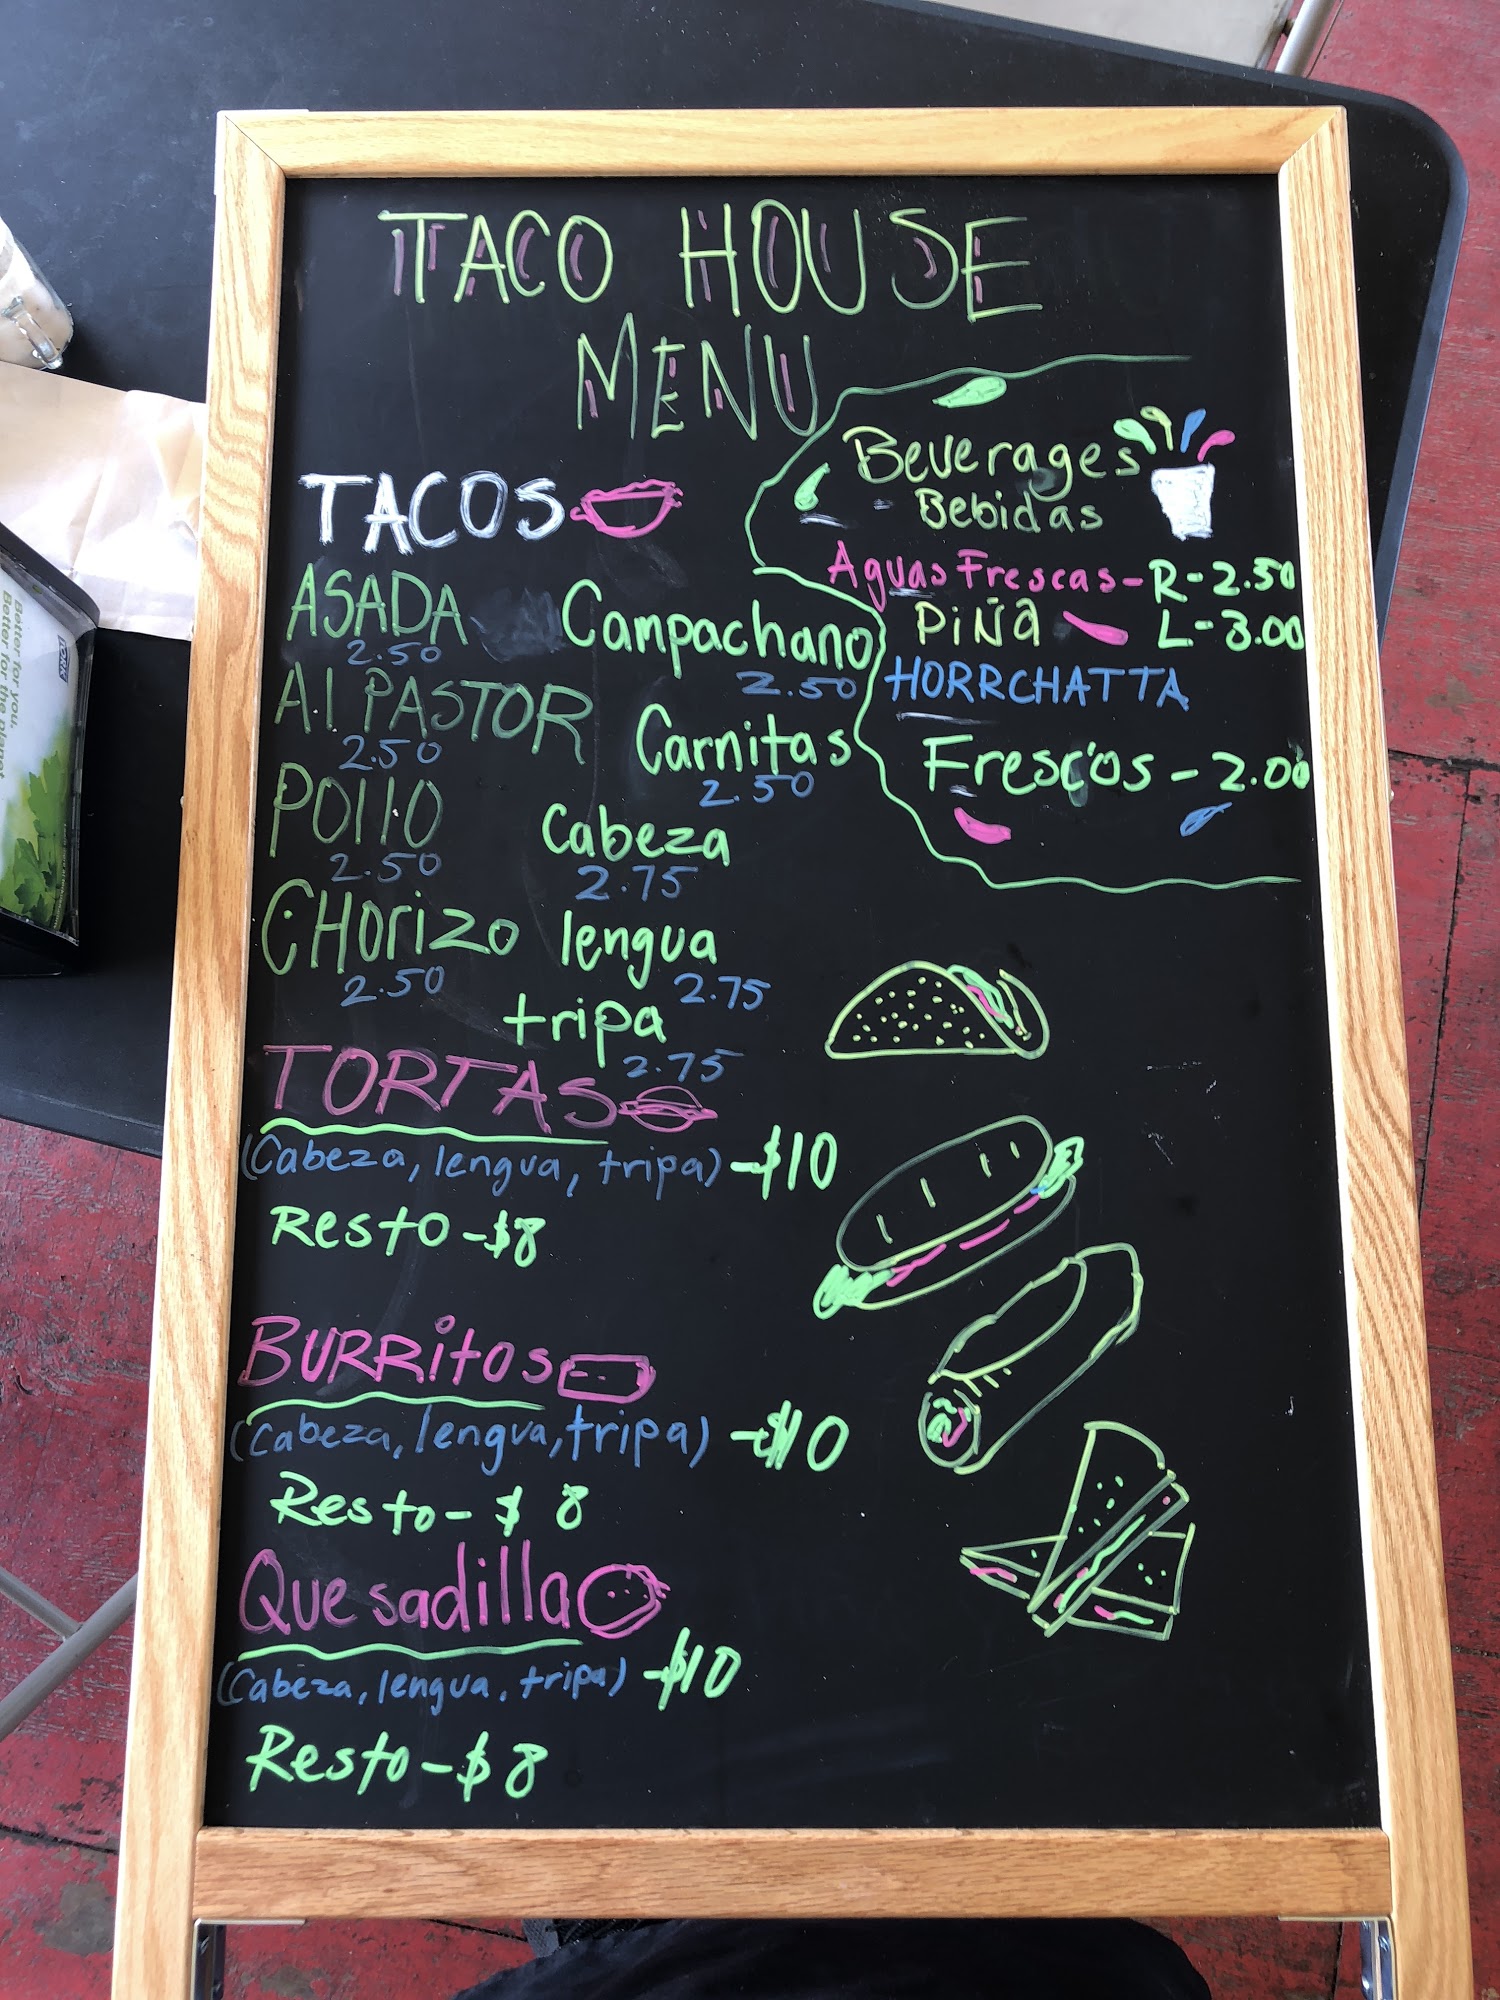 TACO HOUSE
MENU
TACOS
ASADA
2.50
Al PASTOR
2.50
Pollo
2.50
CHorizo
2.50
Campachano
2.50
Carnitas
2.50
Cabeza
2.75
lengua
2.75
tripa
2.75
Beverages
Bebidas
Aguas Frescas - R - 2.50
PiÑa L - 3.00
HORRCHATTA
Frescos - 2.00
TORTAS
(Cabeza, lengua, tripa) - $10
Resto - $8
BURRitos
(Cabeza, lengua, tripa) - $10
Resto - $8
Quesadilla
(Cabeza, lengua, tripa) - $10
Resto - $8
TORK
Better for you.
Better for the planet